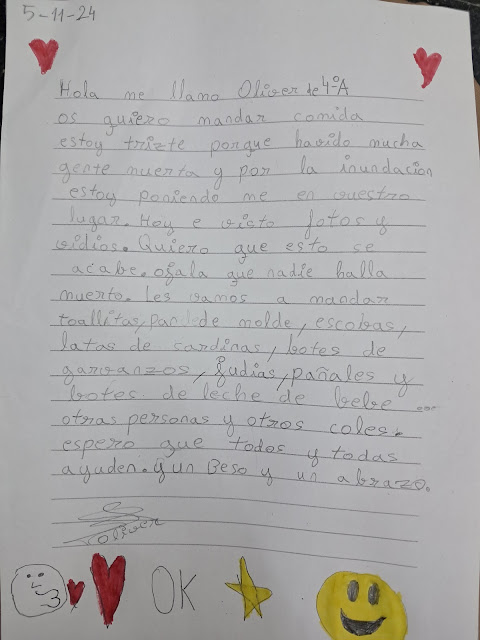 5-11-24
Hola me llamo Oliver de 4ºA
os quiero mandar comida
estoy trizte porque havido mucha
gente muerta y por la inundacion
estoy poniendo me en vuestro
lugar. Hoy e visto fotos y
vidios. Quiero que esto se
acabe. ojala que nadie halla
muerto. Les vamos a mandar
toallitas, pan de molde, escobas,
latas de sardinas, botes de
garvanzos, judias, pañales y
botes de leche de bebe
otras personas y otros coles.
espero que todos y todas
ayuden. y un Beso y un abrazo.
Oliver
OK